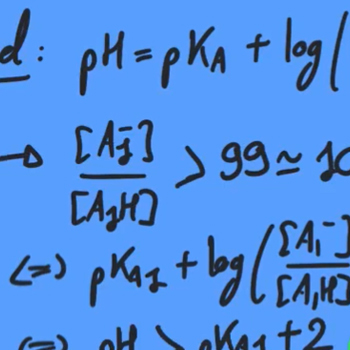 d: pH = pKA + log(
→ [A1-]/[A1H] > 99 ≃ 10
(=) pKA1 + log([A1-]/[A1H]
(=) pH > pKA1 + 2